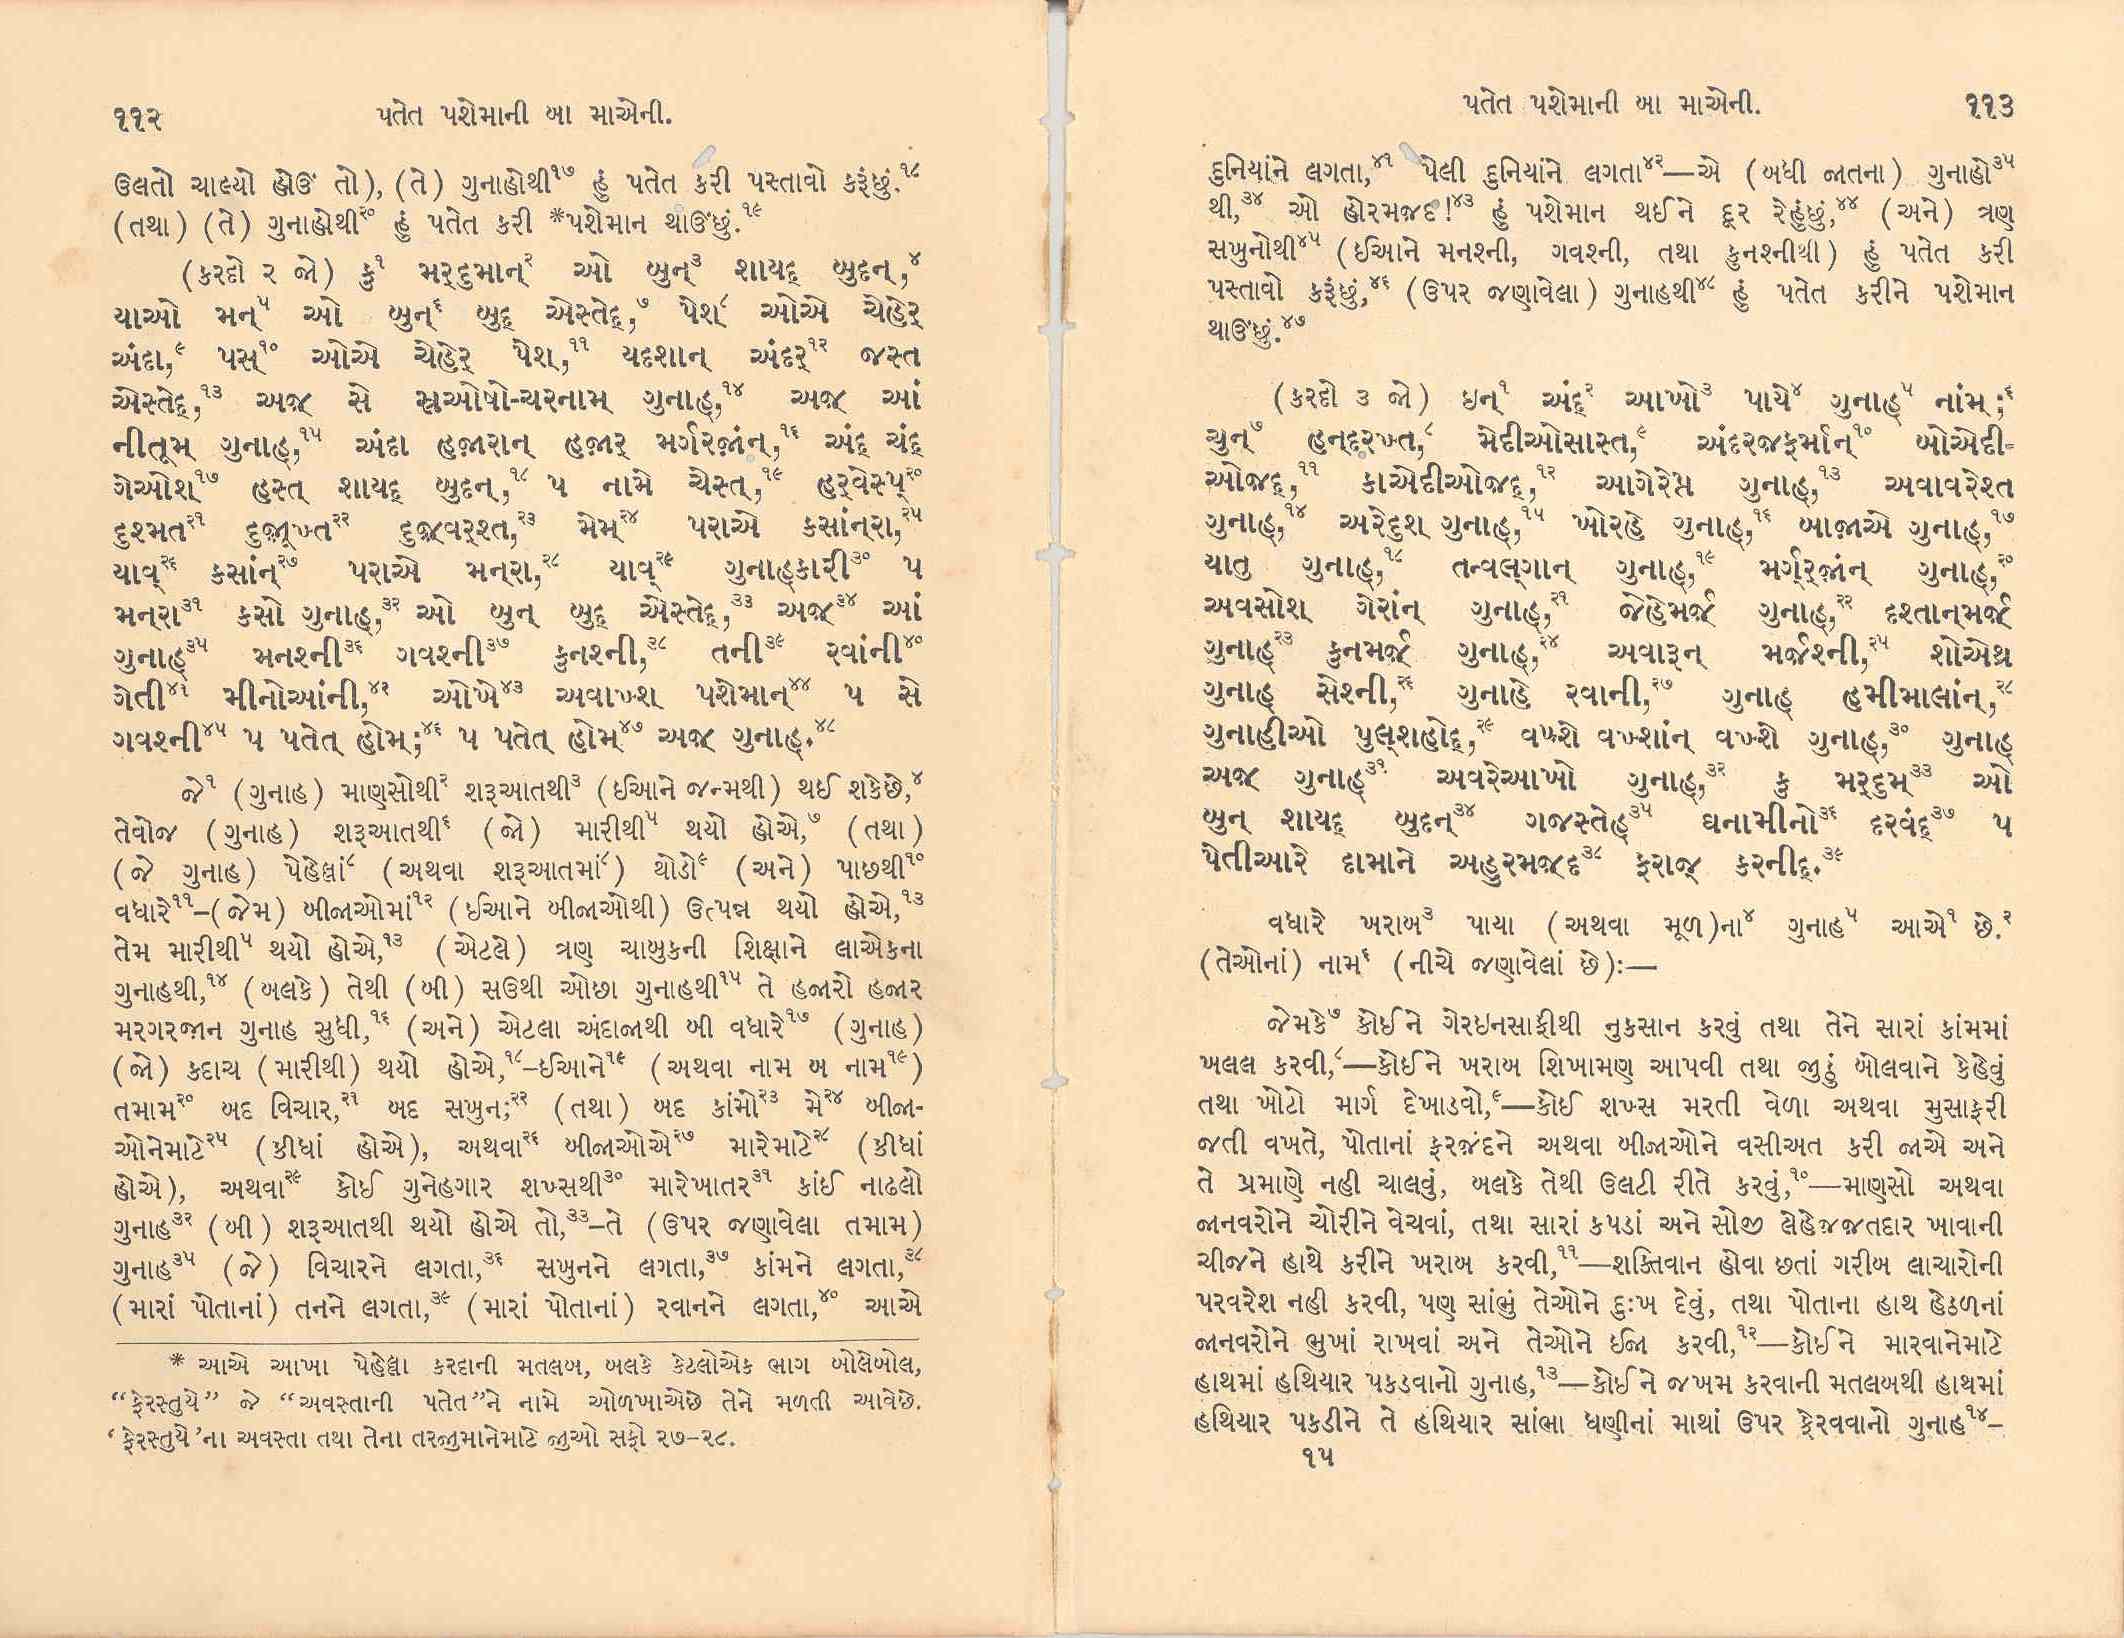 ૧૧૨ પતેત પશેમાની બા માએની.
ઉલતો ચાલ્યો હોઊં તો), (તે) ગુનાહોથી૧૭ હું પતેત કરી પસ્તાવો કરૂંછું.૧૮
(તથા) (તે) ગુનાહોથી૨૦ હું પતેત કરી *પશેમાન થાઊંછું.૧૯
(કરદો ૨ જો) કુ૧ મર્દુમાન્૨ ઓ બુન્૩ શાયદ્ બુદન્,૪
યાઓ મન્૫ ઓ બુન્૬ બુદ્ એસ્તેદ્,૭ પેશ્૮ ઓએ ચેહેર્
અંદા,૯ પસ્૧૦ ઓએ ચેહેર્ પેશ્,૧૧ યદશાન્ અંદર્૧૨ જસ્ત
એસ્તેદ્,૧૩ અજ઼્ સે સ્રઓષો-ચરનામ્ ગુનાહ્,૧૪ અજ઼્ આં
નીતૂમ્ ગુનાહ્,૧૫ અંદા હજ઼ારાન્ હજ઼ાર્ મર્ગરજ઼ાંન્,૧૬ અંદ્ ચંદ્
ગેઓશ્૧૭ હસ્ત્ શાયદ્ બુદન્,૧૮ પ નામે ચેસ્ત્,૧૯ હર્વેસ્પ્૨૦
દુશ્મત૨૧ દુજ઼ૂખ્ત૨૨ દુજ઼્વર્શ્ત,૨૩ મેમ્૨૪ પરાએ કસાંન્રા,૨૫
યાવ્૨૬ કસાંન્૨૭ પરાએ મન્રા,૨૮ યાવ્૨૯ ગુનાહ્કારી૩૦ પ
મન્રા૩૧ કસો ગુનાહ્,૩૨ ઓ બુન્ બુદ્ એસ્તેદ્,૩૩ અજ઼્૩૪ આં
ગુનાહ્૩૫ મનશ્ની૩૬ ગવશ્ની૩૭ કુનશ્ની,૩૮ તની૩૯ રવાંની૪૦
ગેતી૪૧ મીનોઆંની,૪૨ ઓખે૪૩ અવાખ્શ પશેમાન્૪૪ પ સે
ગવશ્ની૪૫ પ પતેત્ હોમ્;૪૬ પ પતેત્ હોમ્૪૭ અજ઼્ ગુનાહ્.૪૮
જે૧ (ગુનાહ) માણસોથી૨ શરૂઆતથી૩ (ઈઆને જન્મથી) થઈ શકેછે,૪
તેવોજ (ગુનાહ) શરૂઆતથી૬ (જો) મારીથી૫ થયો હોએ,૭ (તથા)
(જે ગુનાહ) પેહેલાં૮ (અથવા શરૂઆતમાં૮) થોડો૯ (અને) પાછથી૧૦
વધારે૧૧–(જેમ) બીજાઓમાં૧૨ (ઈઆને બીજાઓથી) ઉત્પન્ન થયો હોએ,૧૩
તેમ મારીથી૫ થયો હોએ,૧૩ (એટલે) ત્રણ ચાબુકની શિક્ષાને લાએકના
ગુનાહથી,૧૪ (બલકે) તેથી (બી) સઉથી ઓછા ગુનાહથી૧૫ તે હજારો હજાર
મરગરજ઼ાન ગુનાહ સુધી,૧૬ (અને) એટલા અંદાજાથી બી વધારે૧૭ (ગુનાહ)
(જો) કદાચ (મારીથી) થયો હોએ,૧૮–ઈઆને૧૯ (અથવા નામ બ નામ૧૯)
તમામ૨૦ બદ વિચાર,૨૧ બદ સખુન;૨૨ (તથા) બદ કાંમો૨૩ મે૨૪ બીજા-
ઓનેમાટે૨૫ (કીધાં હોએ), અથવા૨૬ બીજાઓએ૨૭ મારેમાટે૨૮ (કીધાં
હોએ), અથવા૨૯ કોઈ ગુનેહગાર શખ્સથી૩૦ મારેખાતર૩૧ કાંઈ નાઢલો
ગુનાહ૩૨ (બી) શરૂઆતથી થયો હોએ તો,૩૩–તે (ઉપર જણાવેલા તમામ)
ગુનાહ૩૫ (જે) વિચારને લગતા,૩૬ સખુનને લગતા,૩૭ કાંમને લગતા,૩૮
(મારાં પોતાનાં) તનને લગતા,૩૯ (મારાં પોતાનાં) રવાનને લગતા,૪૦ આએ
* આએ આખા પેહેલા કરદાની મતલબ, બલકે કેટલોએક ભાગ બોલેબોલ,
“ફ્રેરસ્તુયે” જે “અવસ્તાની પતેત”ને નામે ઓળખાએછે તેને મળતી આવેછે.
‘ફ્રેરસ્તુયે’ના અવસ્તા તથા તેના તરજુમાનેમાટે જુઓ સફો ૨૭–૨૮.
પતેત પશેમાની બા માએની. ૧૧૩
દુનિયાંને લગતા,૪૧ પેલી દુનિયાંને લગતા૪૨—એ (બધી જાતના) ગુનાહો૩૫
થી,૩૪ ઓ હોરમજ઼દ!૪૩ હું પશેમાન થઈને દૂર રેહુંછું,૪૪ (અને) ત્રણ
સખુનોથી૪૫ (ઈઆને મનશ્ની, ગવશ્ની, તથા કુનશ્નીથી) હું પતેત કરી
પસ્તાવો કરૂંછું,૪૬ (ઉપર જણાવેલા) ગુનાહથી૪૮ હું પતેત કરીને પશેમાન
થાઊંછું.૪૭
(કરદો ૩ જો) ઇન્૧ અંદ્૨ આખો૩ પાયે૪ ગુનાહ્૫ નાંમ્;૬
ચુન્૭ હન્દરખ્ત,૮ મેદીઓસાસ્ત,૯ અંદરજફર્માન્૧૦ બોએદી-
ઓજ઼દ્,૧૧ કાએદીઓજ઼દ્,૧૨ આગેરેપ્ત ગુનાહ્,૧૩ અવાવરેશ્ત
ગુનાહ્,૧૪ અરેદુશ્ ગુનાહ્,૧૫ ખોરહે ગુનાહ્,૧૬ બાજ઼ાએ ગુનાહ્,૧૭
યાતુ ગુનાહ્,૧૮ તન્વલ્ગાન્ ગુનાહ્,૧૯ મર્ગ્ર્જ઼ાંન્ ગુનાહ્,૨૦
અવસોશ્ ગેરાંન્ ગુનાહ્,૨૧ જેહેમર્જ઼ ગુનાહ્,૨૨ દશ્તાન્મર્જ઼
ગુનાહ૨૩ કુનમર્જ઼ ગુનાહ્,૨૪ અવારૂન્ મર્જ઼શ્ની,૨૫ શોએથ્ર
ગુનાહ્ સેશ્ની,૨૬ ગુનાહે રવાની,૨૭ ગુનાહ્ હમીમાલાંન્,૨૮
ગુનાહીઓ પુલ્શહોદ્,૨૯ વખ્શે વખ્શાંન્ વખ્શે ગુનાહ્,૩૦ ગુનાહ્
અજ઼્ ગુનાહ્૩૧ અવરેઆખો ગુનાહ્,૩૨ કુ મર્દુમ્૩૩ ઓ
બુન્ શાયદ્ બુદન્૩૪ ગજસ્તેહ્૩૫ ઘનામીનો૩૬ દરવંદ્૩૭ પ
પેતીઆરે દામાને અહુરમજ઼્દ૩૮ ફરાજ઼્ કરનીદ્.૩૯
વધારે ખરાબ૩ પાયા (અથવા મૂળ)ના૪ ગુનાહ૫ આએ૧ છે.૨
(તેઓનાં) નામ૬ (નીચે જણાવેલાં છે):—
જેમકે૭ કોઈને ગેરઇનસાફીથી નુકસાન કરવું તથા તેને સારાં કાંમમાં
ખલલ કરવી,૮—કોઈને ખરાબ શિખામણ આપવી તથા જુઠું બોલવાને કેહેવું
તથા ખોટો માર્ગ દેખાડવો,૯—કોઈ શખ્સ મરતી વેળા અથવા મુસાફરી
જતી વખતે, પોતાનાં ફરજ઼ંદને અથવા બીજાઓને વસીઅત કરી જાએ અને
તે પ્રમાણે નહી ચાલવું, બલકે તેથી ઉલટી રીતે કરવું,૧૦—માણસો અથવા
જાનવરોને ચોરીને વેચવાં, તથા સારાં કપડાં અને સોજી લેહેજ઼જતદાર ખાવાની
ચીજને હાથે કરીને ખરાબ કરવી,૧૧—શક્તિવાન હોવા છતાં ગરીબ લાચારોની
પરવરેશ નહી કરવી, પણ સાંભું તેઓને દુઃખ દેવું, તથા પોતાના હાથ હેઠળનાં
જાનવરોને ભુખાં રાખવાં અને તેઓને ઈજા કરવી,૧૨—કોઈને મારવાનેમાટે
હાથમાં હથિયાર પકડવાનો ગુનાહ,૧૩—કોઈને જખમ કરવાની મતલબથી હાથમાં
હથિયાર પકડીને તે હથિયાર સાંભા ધણીનાં માથાં ઉપર ફેરવવાનો ગુનાહ૧૪–
૧૫